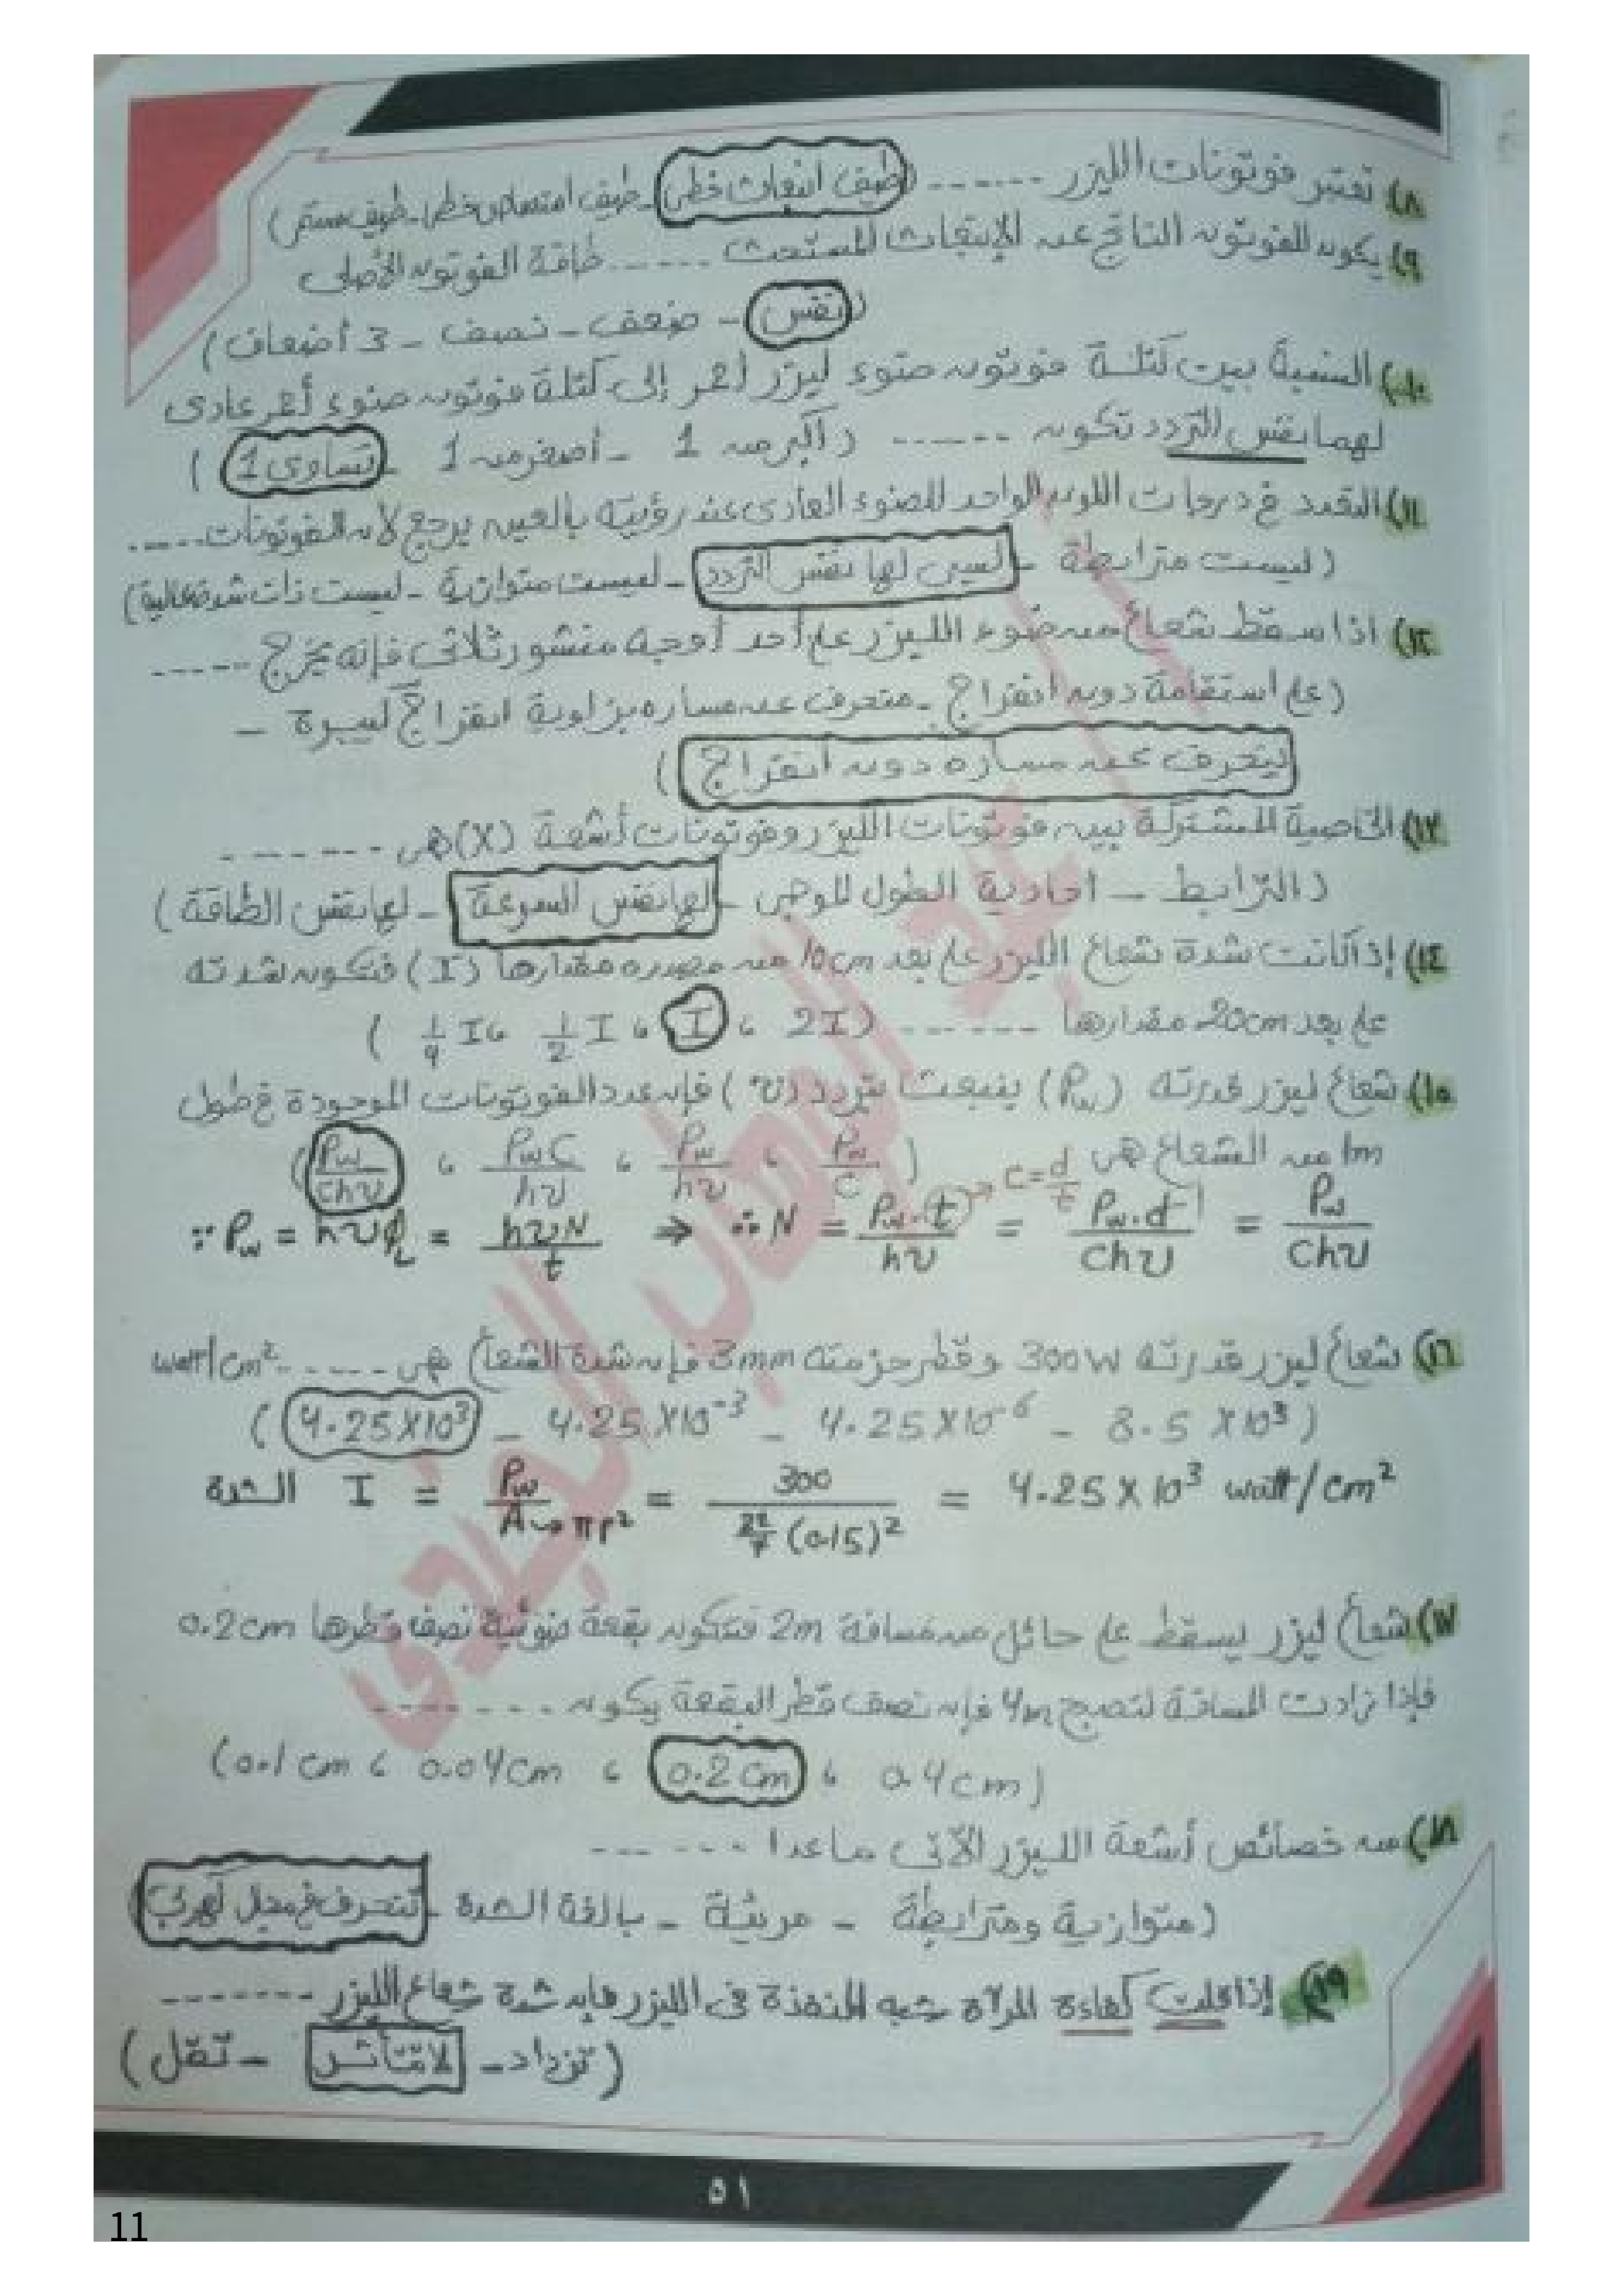 ٨) تعتبر فوتونات الليزر ------- (طيف انبعاث خطى - طيف امتصاص خطى - طيف مستمر)
٩) يكون الفوتون الناتج عن الانبعاث المستحث ------ طاقة الفوتون الأصلى
(نفس - ضعف - نصف - 3 أضعاف)
١٠) النسبة بين كتلة فوتون ضوء ليزر أحمر إلى كتلة فوتون ضوء أحمر عادى
لهما نفس التردد تكون ------ (أكبر من 1 - أصغر من 1 - تساوى 1)
١١) التعدد فى درجات اللون الواحد للضوء العادى عند رؤيته بالعين يرجع لأن الفوتونات -----
(ليست مترابطة - ليس لها نفس التردد - ليست متوازية - ليست ذات شدة عالية)
١٢) اذا سقط شعاع من ضوء الليزر على أحد أوجه منشور ثلاثى فإنه يخرج -----
(على استقامة دون انفراج - منحرف عن مساره بزاوية انفراج كبيرة -
ينحرف عن مساره دون انفراج)
١٣) الخاصية المشتركة بين فوتونات الليزر وفوتونات أشعة (X) هى -------
(الترابط - احادية الطول الموجى - لها نفس السرعة - لها نفس الطاقة)
١٤) إذا كانت شدة شعاع الليزر على بعد 10cm من مصدره مقدارها (I) فتكون شدته
على بعد 20cm مقدارها ------ (2I ، I ، 1/2 I ، 1/4 I)
١٥) شعاع ليزر قدرته (Pw) ينبعث بتردد (υ) فإن عدد الفوتونات الموجودة فى طول
1m من الشعاع هى (Pw/C ، Pw/hυ ، PwC/hυ ، Pw/Chυ)
∵ Pw = hυϕL = hυN/t ⇒ ∴ N = Pw.(t)/hυ → C = d/t = Pw.d/Chυ = Pw/Chυ
١٦) شعاع ليزر قدرته 300W وقطر حزمته 3mm فإن شدة الشعاع هى ----- watt/cm²
(4.25X10³ - 4.25X10⁻³ - 4.25X10⁻⁶ - 8.5X10³)
الشدة I = Pw/A→πr² = 300/(22/7 (0.15)²) = 4.25X10³ watt/cm²
١٧) شعاع ليزر يسقط على حائل من مسافة 2m فتتكون بقعة ضوئية نصف قطرها 0.2cm
فإذا زادت المسافة لتصبح 4m فإن نصف قطر البقعة يكون -------
(0.1cm ، 0.04cm ، 0.2cm ، 0.4cm)
١٨) من خصائص أشعة الليزر الآتى ماعدا ------
(متوازية ومترابطة - مرئية - بالغة الشدة - تنحرف فى مجال كهربى)
١٩) إذا قلت كفاءة المرآة شبه المنفذة فى الليزر فإن شدة شعاع الليزر -------
(تزداد - لا تتأثر - تقل)
٥١
11